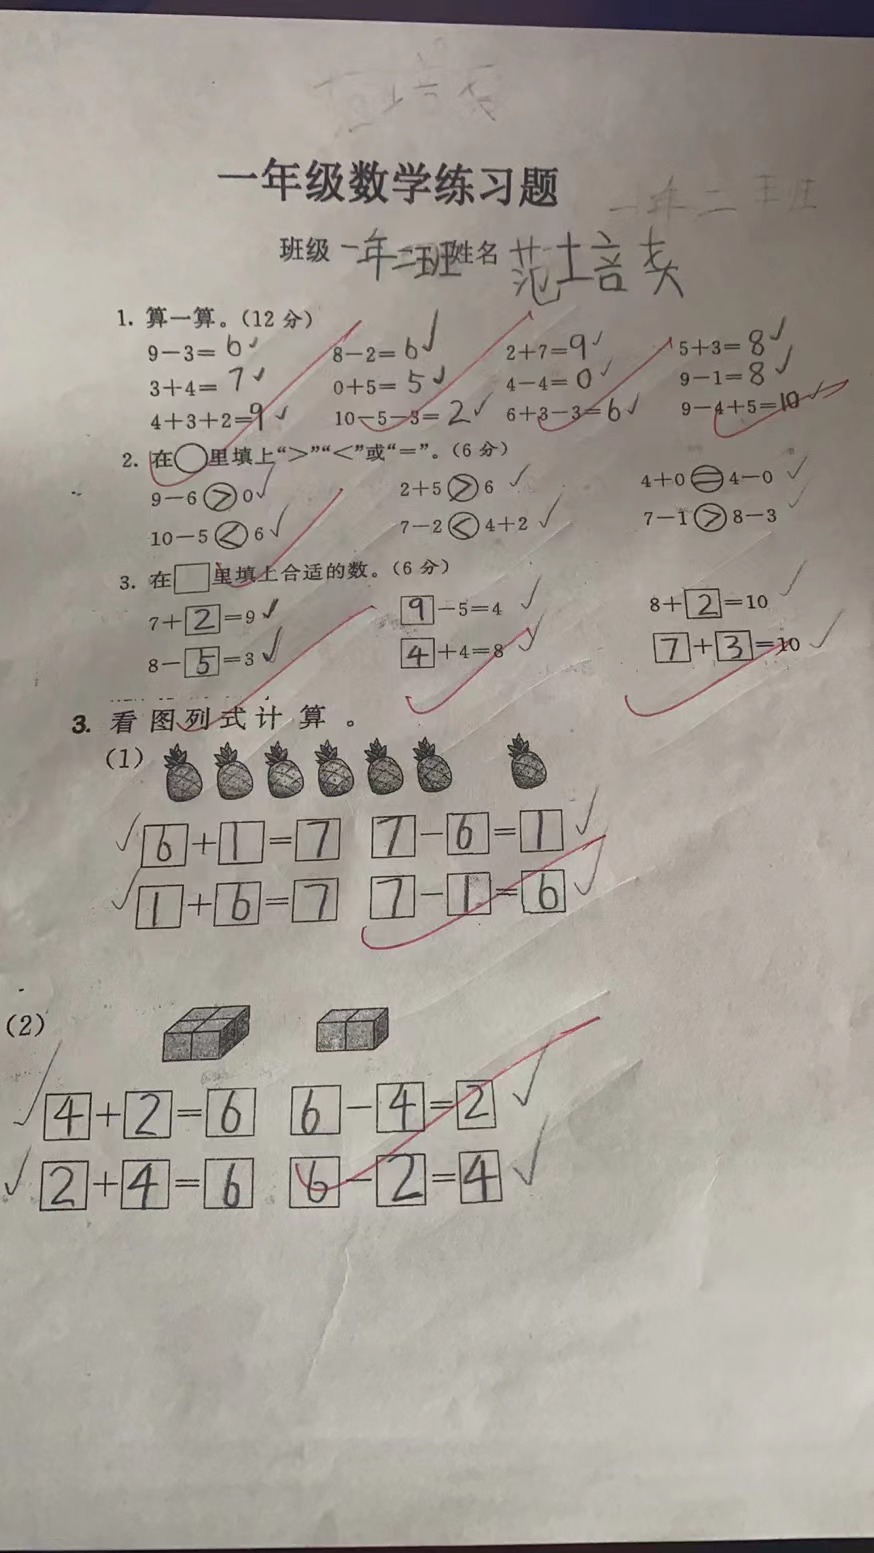 一年级数学练习题
班级 一年二班 姓名 范士音
1. 算一算。(12分)
9－3＝6 8－2＝6 2＋7＝9 5＋3＝8
3＋4＝7 0＋5＝5 4－4＝0 9－1＝8
4＋3＋2＝9 10－5－3＝2 6＋3－3＝6 9－4＋5＝10
2. 在○里填上“＞”“＜”或“＝”。(6分)
9－6＞0 2＋5＞6 4＋0＝4－0
10－5＜6 7－2＜4＋2 7－1＞8－3
3. 在□里填上合适的数。(6分)
7＋2＝9 9－5＝4 8＋2＝10
8－5＝3 4＋4＝8 7＋3＝10
3. 看图列式计算。
(1)
6＋1＝7 7－6＝1
1＋6＝7 7－1＝6
(2)
4＋2＝6 6－4＝2
2＋4＝6 6－2＝4